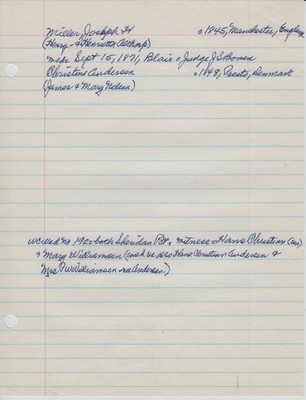 Miller, Joseph H c 1845, Manchester, England
(Henry - & Henrietta Althorp)
m Sept 15, 1871, Blair - Judge J S Bowen
Christine Andersen c 1848, Presto, Denmark
(James & Mary Nelsen)
WCWed 192 - both Sheridan Pct, witness = Hans Christian (an)
& Mary Williamsen (and he also Hans Christian Andersen &
Mrs Williamsen nee Andersen.)